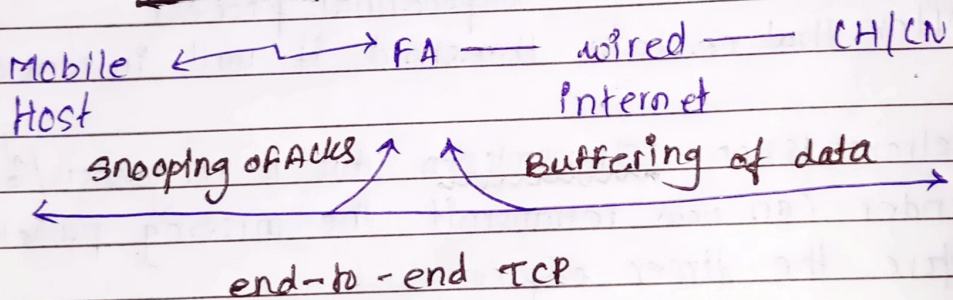 Mobile Host
FA
wired internet
CH/CN
Snooping of ACKs
Buffering of data
end-to-end TCP